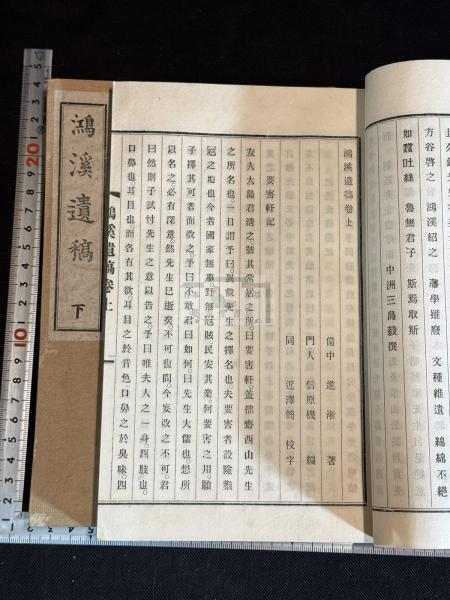 方谷啓之 鴻溪紹之 藩學雖廢 文種維遺 綿綿不絕
如蠶吐絲 魯無君子 斯焉取斯
中洲三島毅撰
鴻溪遺稿卷上
備中 進漸 著
門人 信原機 編
同 近澤簡 校字
要害軒記
友人大島君濤之號其常居之所曰要害軒。蓋齋西山先生
之所名也。一日謂予曰。異哉先生之擇名也。夫要害者設險禦
寇之地也。今者國家無事。野無寇賊。民安其業。何要害之用。願
子擇其可者而改之。予曰不敢。君曰如何。曰先生大儒也。想所
以名之必有深意。然先生已逝矣。不可復問。今妄改之不可。君
曰然則子試忖先生之意以告之。予曰唯。夫人之一身。四肢也。
口鼻也。耳目也。而各有其欲。耳目之於音色。口鼻之於臭味。四
鴻溪遺稿卷上
鴻溪遺稿 下
20